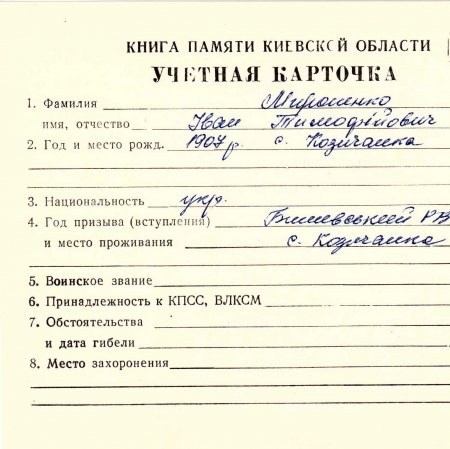 КНИГА ПАМЯТИ КИЕВСКОЙ ОБЛАСТИ
УЧЕТНАЯ КАРТОЧКА
1. Фамилия Мироненко
имя, отчество Іван Тимофійович
2. Год и место рожд. 1907 р. с. Козичанка
3. Национальность укр.
4. Год призыва (вступления) Бишевський РВ
и место проживания с. Козичанка
5. Воинское звание
6. Принадлежность к КПСС, ВЛКСМ
7. Обстоятельства
и дата гибели
8. Место захоронения